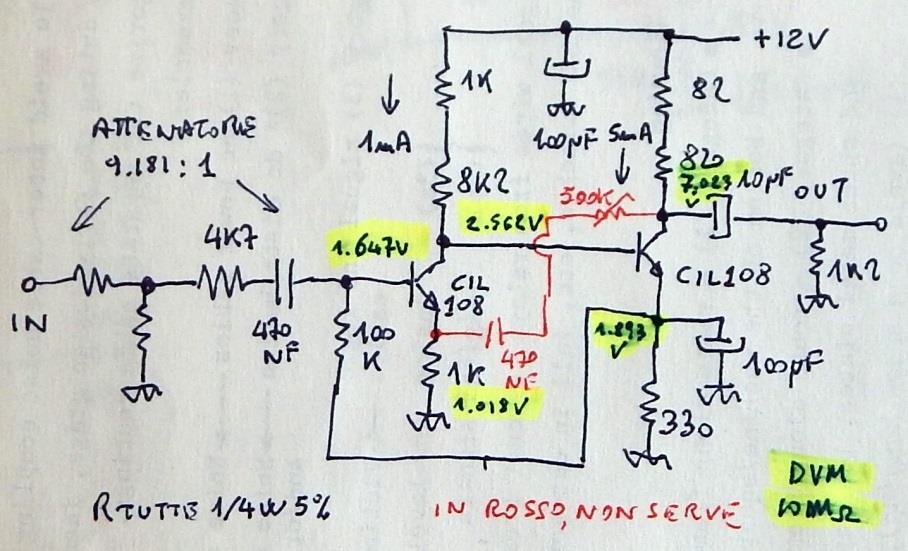 +12V
1K
82
ATTENATORE
9.181 : 1
1mA
100µF
5mA
820
7,023
V
10µF
OUT
8K2
500K
2.562V
4K7
1.647V
CIL
108
CIL108
1K2
IN
470
NF
100
K
470
NF
1.893
V
100µF
1K
1.018V
330
DVM
10MΩ
R TUTTE 1/4W 5%
IN ROSSO, NON SERVE